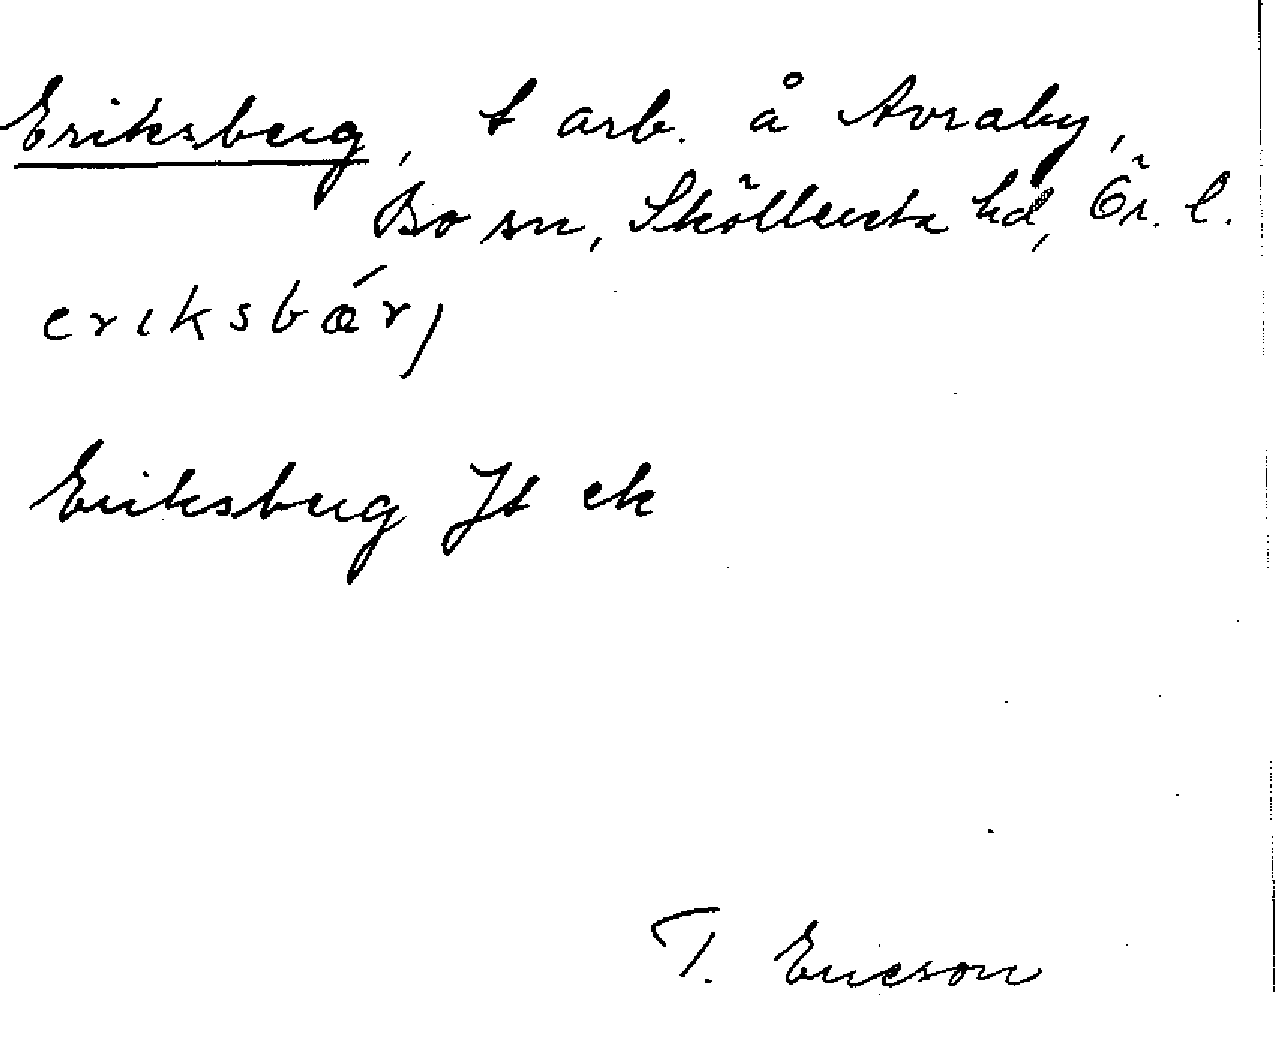 Eriksberg, t arb. å Avraby,
Bo sn, Sköllersta hd, Ör. l.
eriksbær,
Eriksberg Jt ek
T. Ericson